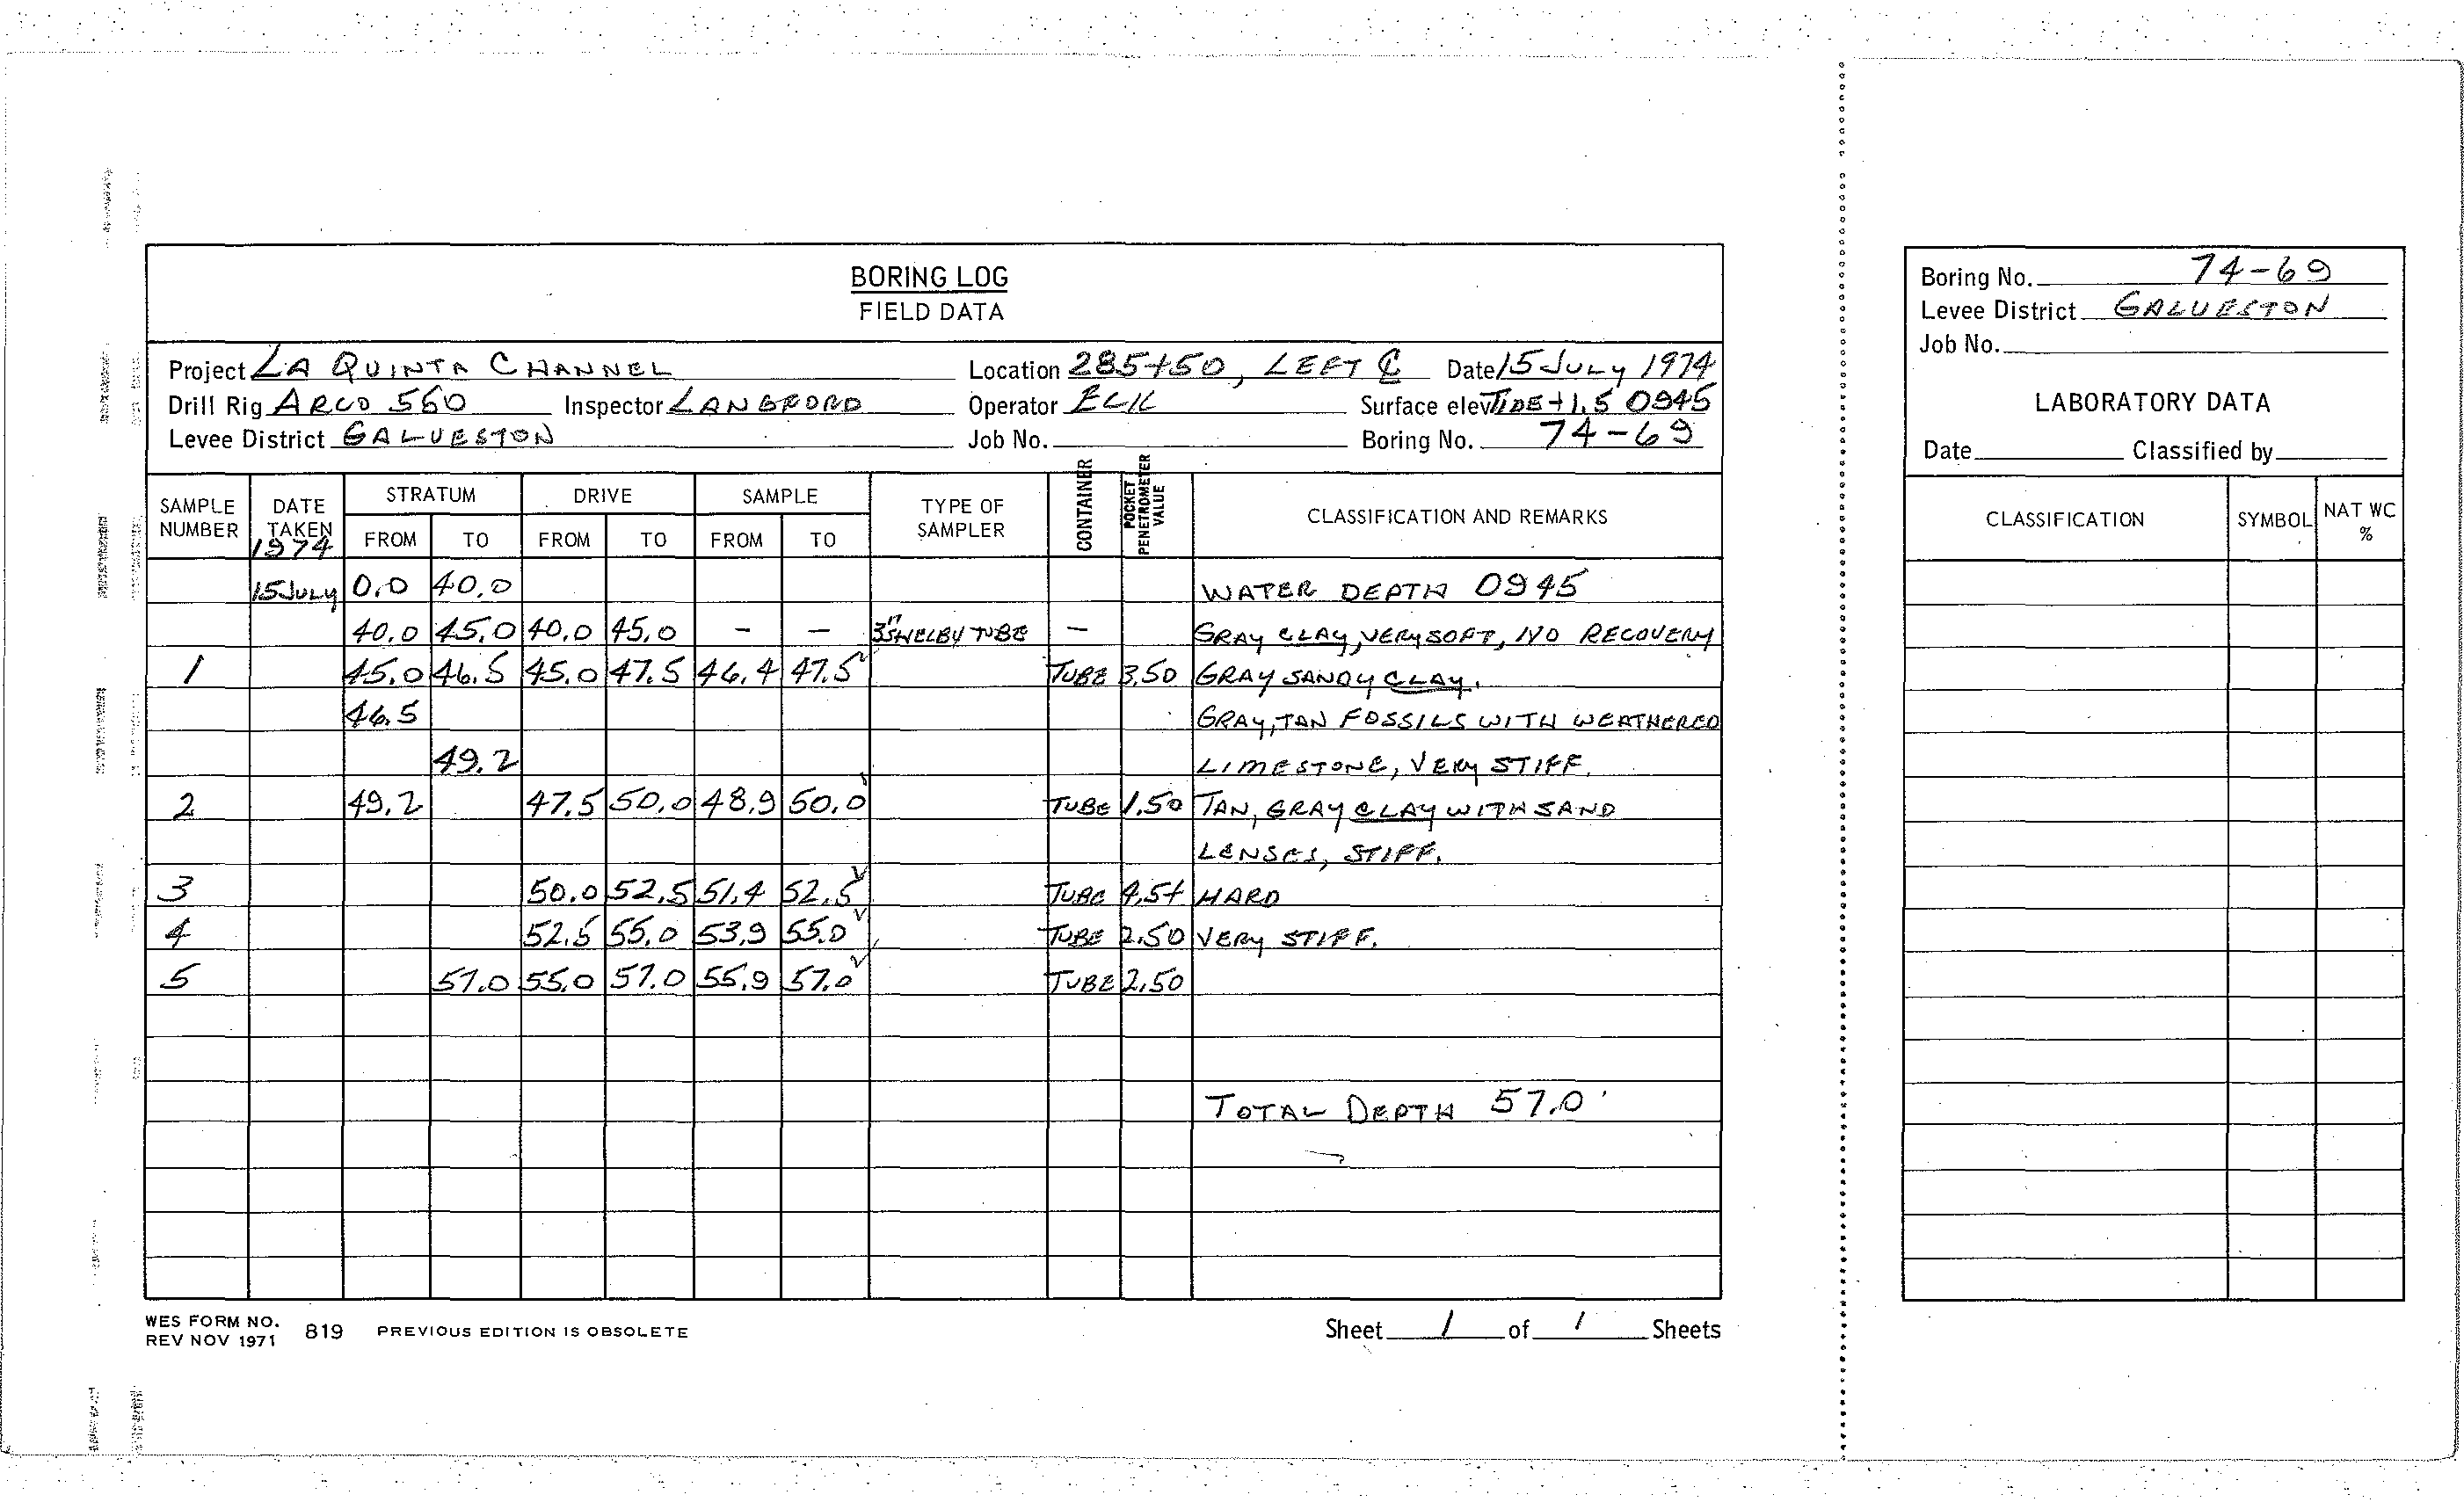 BORING LOG
FIELD DATA
Project LA QUINTA CHANNEL Location 285+50, LEFT ℄ Date 15 JULY 1974
Drill Rig ARCO 550 Inspector LANGFORD Operator Surface elev TIDE +1.5 0945
Levee District GALVESTON Job No. Boring No. 74-69
SAMPLE NUMBER DATE TAKEN 1974 STRATUM FROM TO DRIVE FROM TO SAMPLE FROM TO TYPE OF SAMPLER CONTAINER POCKET PENETROMETER VALUE CLASSIFICATION AND REMARKS
15 JULY 0.0 40.0 WATER DEPTH 0945
40.0 45.0 40.0 45.0 - - 3" SHELBY TUBE - GRAY CLAY, VERY SOFT, NO RECOVERY
1 45.0 46.5 45.0 47.5 46.4 47.5 TUBE 3.50 GRAY SANDY CLAY.
46.5 GRAY, TAN FOSSILS WITH WEATHERED
49.2 LIMESTONE, VERY STIFF.
2 49.2 47.5 50.0 48.9 50.0 TUBE 1.50 TAN, GRAY CLAY WITH SAND
LENSES, STIFF.
3 50.0 52.5 51.4 52.5 TUBE 4.5+ HARD
4 52.5 55.0 53.9 55.0 TUBE 2.50 VERY STIFF.
5 57.0 55.0 57.0 55.9 57.0 TUBE 2.50
TOTAL DEPTH 57.0'
WES FORM NO. 819 PREVIOUS EDITION IS OBSOLETE
REV NOV 1971
Sheet 1 of 1 Sheets
Boring No. 74-69
Levee District GALVESTON
Job No.
LABORATORY DATA
Date Classified by
CLASSIFICATION SYMBOL NAT WC %